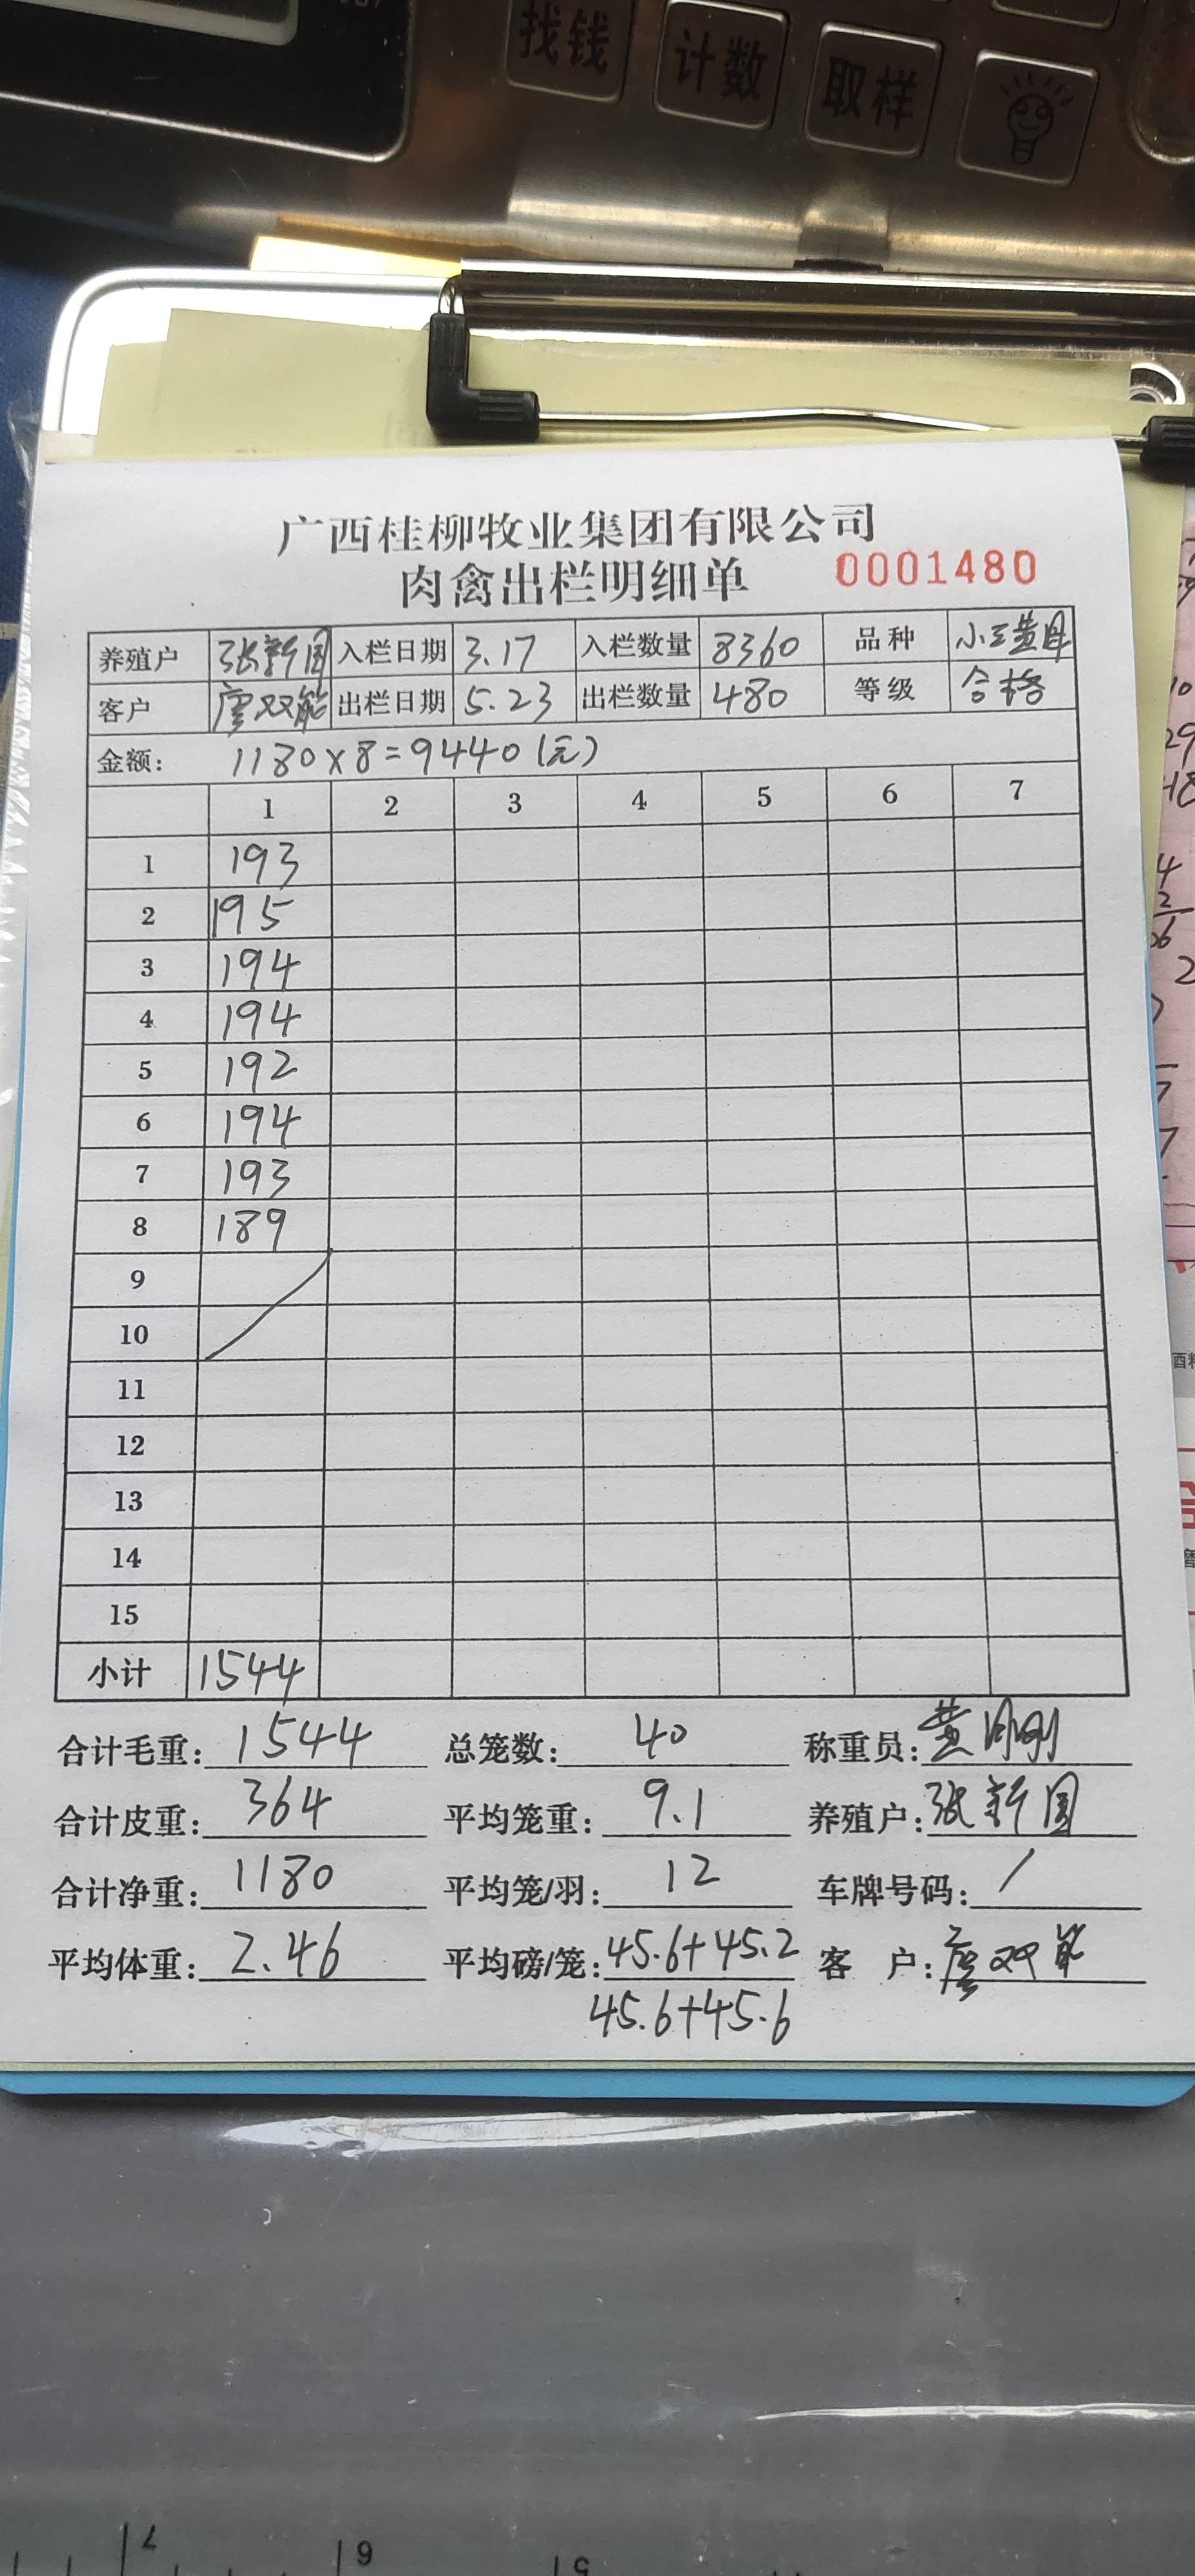 找钱 计数 取样
广西桂柳牧业集团有限公司
肉禽出栏明细单 0001480
养殖户 张新国 入栏日期 3.17 入栏数量 8360 品种 小三黄
客户 双能 出栏日期 5.23 出栏数量 480 等级 合格
金额: 1180×8=9440(元)
1 2 3 4 5 6 7
1 193
2 195
3 194
4 194
5 192
6 194
7 193
8 189
9
10
11
12
13
14
15
小计 1544
合计毛重: 1544 总笼数: 40 称重员: 黄刚刚
合计皮重: 364 平均笼重: 9.1 养殖户: 张新国
合计净重: 1180 平均笼/羽: 12 车牌号码: /
平均体重: 2.46 平均磅/笼: 45.6+45.2 客 户: 双能
45.6+45.6
7 6 5